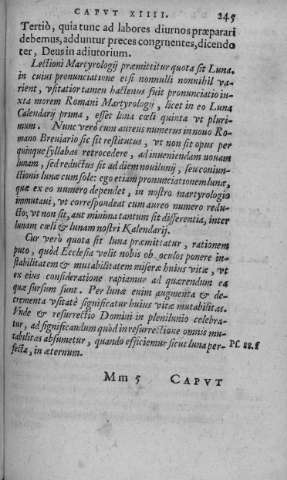 CAPVT XIIII. 245
Tertiò, quia tunc ad labores diurnos præparari
debemus, adduntur preces congruentes, dicendo
ter, Deus in adiutorium.
Lectioni Martyrologij præmittitur quota sit Luna.
in cuius pronunciatione etsi nonnulli nonnihil va-
rient, vsitatior tamen hactenus fuit pronunciatio iu-
xta morem Romani Martyrologij, licet in eo Luna
Calendarij prima, esset luna cœli quinta vt pluri-
mum. Nunc verò cum aureus numerus in nouo Ro-
mano Breuiario sic sit restitutus, vt non sit opus per
quinque syllabas retrocedere, ad inueniendam nouam
lunam, sed reductus sit ad diem nouilunij, seu coniun-
ctionis lunæ cum sole: ego etiam pronunciationem lunæ,
quæ ex eo numero dependet, in nostro martyrologio
inmutaui, vt correspondeat cum aureo numero redu-
cto, vt non sit, aut minima tantum sit differentia, inter
lunam cœli & lunam nostri Kalendarij.
Cur verò quota sit luna præmittatur, rationem
puto, quòd Ecclesia velit nobis ob oculos ponere in-
stabilitatem & mutabilitatem miseræ huius vitæ, vt
ex eius consideratione rapiamur ad quærendum ea
quæ sursum sunt. Per lunæ enim augmenta & de-
crementa vsitatè significatur huius vitæ mutabilitas.
Vnde & resurrectio Domini in plenilunio celebra-
tur, ad significandum quòd in resurrectione omnis mu-
tabilitas absumetur, quando efficiemur sicut luna per- Ps. 88.
fecta, in æternum.
Mm 5 CAPVT